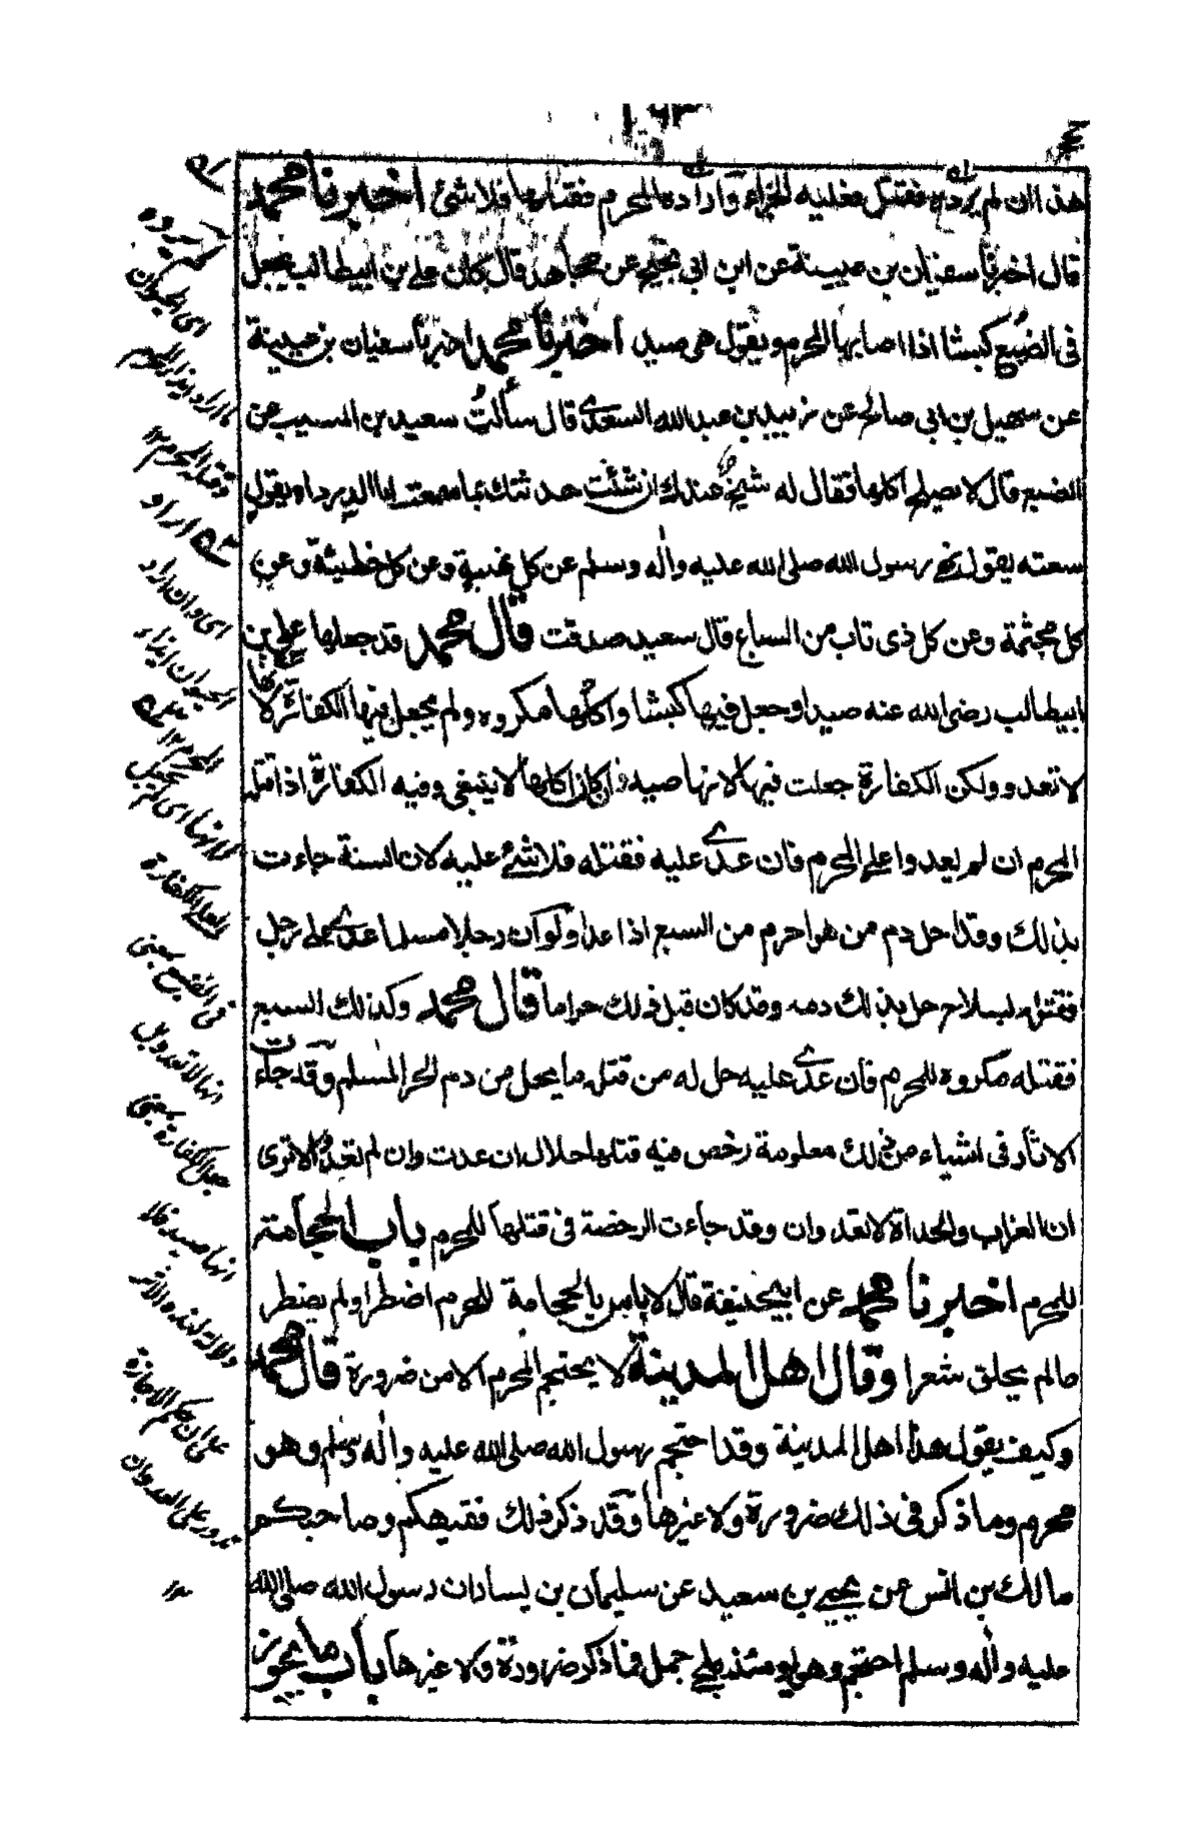 ١٦٣
هذا ان لم يرده فقتل فعليه الجزاء وارادة المحرم فقتلها فلا شئ اخبرنا محمد
قال اخبرنا سفيان بن عيينة عن ابن ابى نجيح عن مجاهد قال كان على بن ابيطالب يجعل
فى الضبع كبشا اذا اصابها المحرم ويقول هى صيد اخبرنا محمد اخبرنا سفيان بن عيينة
عن سهيل بن ابى صالح عن يزيد بن عبد الله السعدى قال سألت سعيد بن المسيب عن
الضبع قال لا يصلح اكلها فقال له شيخ عندك ان شئت حدثتك بما سمعت ابا الدرداء يقول
سمعته يقول نهى رسول الله صلى الله عليه واله وسلم عن كل نهبة وعن كل خطيئة وعن
كل مجثمة وعن كل ذى ناب من السباع قال سعيد صدقت قال محمد قد جعلها على بن
ابيطالب رضى الله عنه صيدا وجعل فيها كبشا واكلها مكروه ولم يجعل فيها الكفارة لانها
لا تعدو ولكن الكفارة جعلت فيها لانها صيد وان كان اكلها لا ينبغى وفيه الكفارة اذا قتله
المحرم ان لم يعدوا على المحرم فان عدى عليه فقتله فلا شئ عليه لان السنة جاءت
بذلك وقد احل دم من هو احرم من السبع اذا عدا ولو ان رجلا مسلما عدى على رجل
فقتله بسلاح حل بذلك دمه وقد كان قبل ذلك حراما قال محمد وكذلك السبع
فقتله مكروه للمحرم فان عدى عليه حل له من قتله ما يحل من دم الحر المسلم وقد جاءت
الاثار فى اشياء من ذلك معلومة رخص فيه قتلها حلال ان عدت وان لم تعد الا ترى
ان الغراب والحداة لا تعدوان وقد جاءت الرخصة فى قتلها للمحرم باب الحجامة
للمحرم اخبرنا محمد عن ابيحنيفة قال لا باس بالحجامة للمحرم اضطر او لم يضطر
مالم يحلق شعرا وقال اهل المدينة لا يحتجم المحرم الا من ضرورة قال محمد
وكيف يقول هذا اهل المدينة وقد احتجم رسول الله صلى الله عليه واله وسلم وهو
محرم وما ذكر فى ذلك ضرورة ولا غيرها وقد ذكر ذلك فقيهكم وصاحبكم
مالك بن انس عن يحيى بن سعيد عن سليمان بن يسار ان رسول الله صلى الله
عليه واله وسلم احتجم وهو يومئذ بلحى جمل فما ذكر ضرورة ولا غيرها باب ما يجوز
لم يرده
اى الحيوان
اراد ايذاء المحرم
وقتله المحرم ١٢
اراد
اى وان اراد
الحيوان ايذاء
المحرم ١٢
لانها اى لم يجعل
على الكفارة
فى الضبع بمعنى
انها لا تعدو بل
جعل الكفارة بمعنى
انها صيد فلا
دلالة لهذه الاثر
على ان حكم الاجازة
يدور على العدوان
١٢